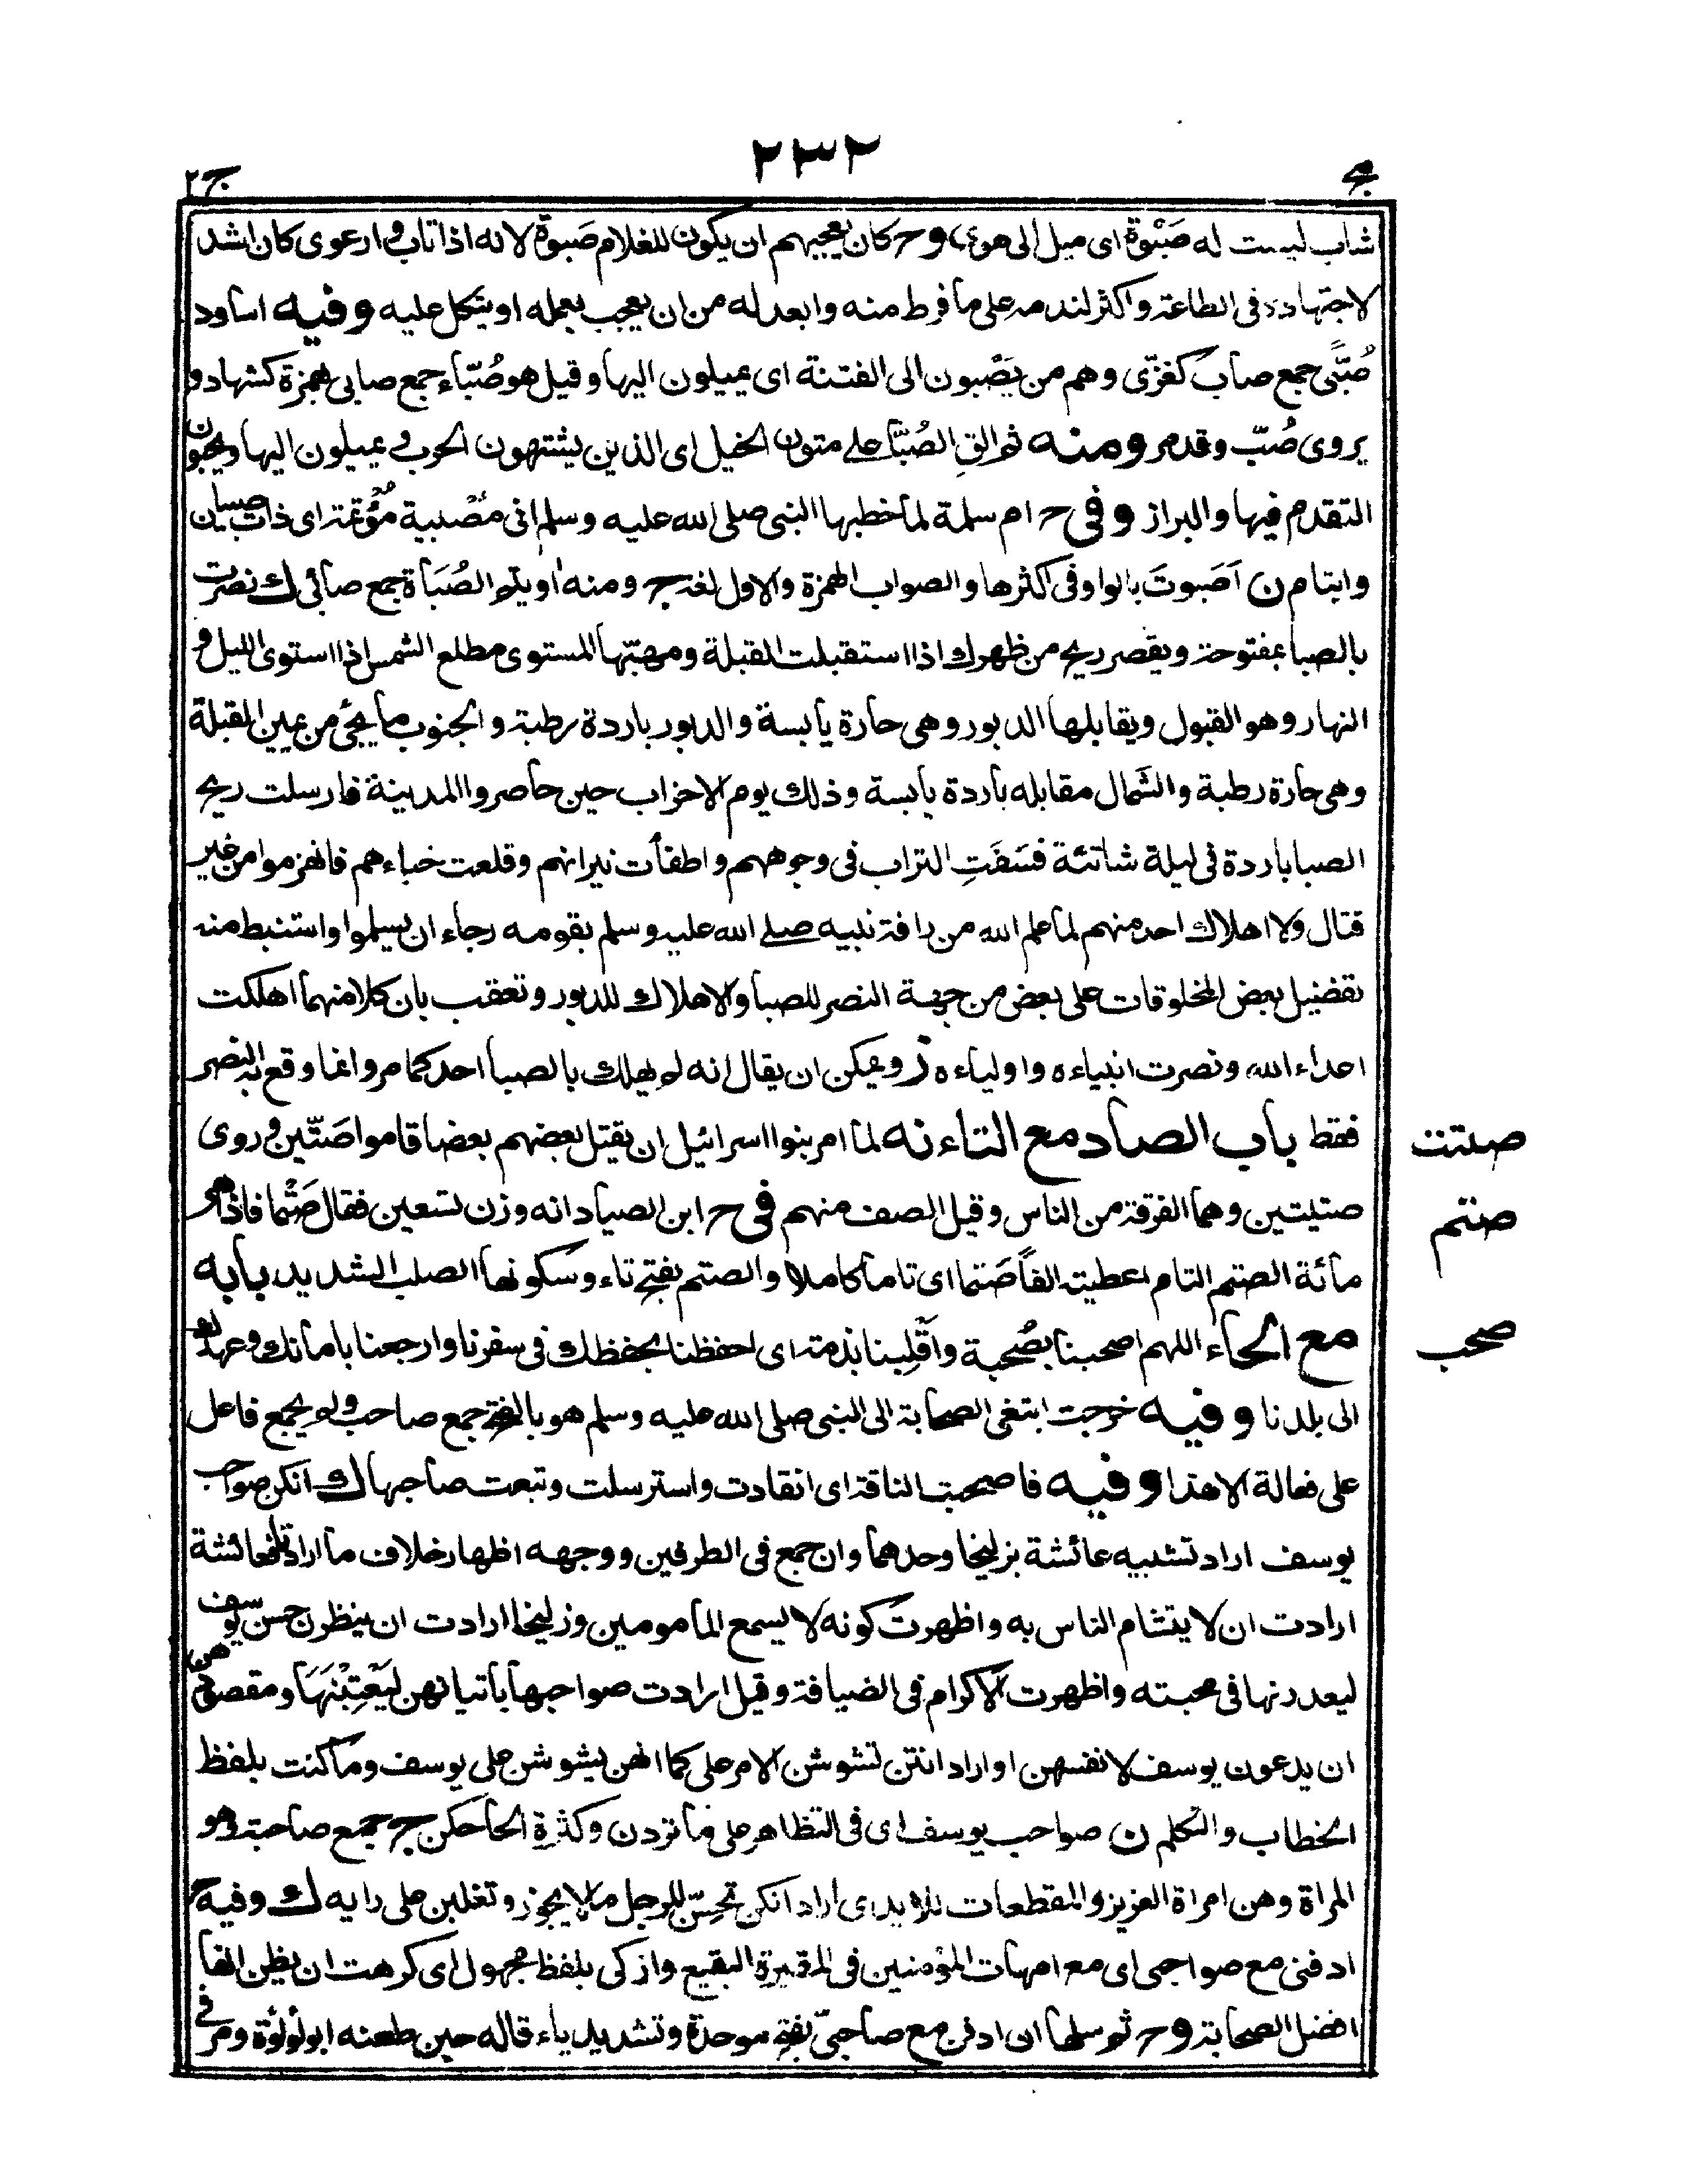 ٢٣٢
ج٢
شاب ليست له صَبْوة اى ميل الى هوى و ح كان يعجبهم ان يكون للغلام صَبوة لانه اذا تاب و ارعوى كان اشد
لاجتهاده فى الطاعة و اكثر لندمه على ما فرط منه وابعد له من ان يعجب بعمله او يتكل عليه وفيه اساود
صُبًّى جمع صاب كغزّى وهم من يَصْبون الى الفتنة اى يميلون اليها وقيل هو صُبّاء جمع صابئ بهمزة كشهاد و
يروى صُبّ وقد مر ومنه ثم الق الصُبّا على متون الخيل اى الذين يشتهون الحرب و يميلون اليها ويحبون
التقدم فيها والبراز وفى ح ام سلمة لما خطبها النبى صلى الله عليه وسلم انى مُصْبية مُؤتمة اى ذات صبيان
وايتام ن اَصَبوتَ بالواو فى اكثرها والصواب الهمزة والاول لغة ج ومنه اويتم الصُبَاة جمع صابئ ك نصرت
بالصبا بمفتوحة ويقصر ريح من ظهرك اذا استقبلت القبلة ومهبّها المستوى مطلع الشمس اذا استوى الليل و
النهار وهو القبول ويقابلها الدبور وهى حارة يابسة والدبور باردة رطبة والجنوب ما يجئ من يمين القبلة
وهى حارة رطبة والشَمال مقابله باردة يابسة وذلك يوم الاحزاب حين حاصروا المدينة فارسلت ريح
الصبا باردة فى ليلة شاتئة فسَفَتِ التراب فى وجوههم واطفأت نيرانهم وقلعت خباءهم فانهزموا من غير
قتال ولا اهلاك احد منهم لما علم الله من رافة نبيه صلى الله عليه وسلم بقومه رجاء ان يسلموا واستنبط منه
تفضيل بعض المخلوقات على بعض من جهة النصر للصبا والاهلاك للدبور وتعقب بان كلا منهما اهلكت
اعداء الله ونصرت انبياءه واولياءه ز ويمكن ان يقال انه لم يهلك بالصبا احد كما مر وانما وقع به النصر
فقط باب الصاد مع التاء نه لما امر بنوا اسرائيل ان يقتل بعضهم بعضا قاموا صَتّين و روى
صتيتين وهما الفرقة من الناس وقيل الصف منهم فى ح ابن الصياد انه وزن تسعين فقال صَتْما فاذا هى
مائة الصتم التام اعطيته الفًا صَتما اى تاما كاملا والصتم بفتح تاء وسكونها الصلب الشديد بابه
مع الحاء اللهم اصحبنا بصُحبة واَقْلِبنا بذمة اى احفظنا بحفظك فى سفرنا وارجعنا بامانك وعهدك
الى بلدنا وفيه خرجت ابتغى الصحابة الى النبى صلى الله عليه وسلم هو بالفتح جمع صاحب ولم يجمع فاعل
على فعالة الا هذا وفيه فاصحبت الناقة اى انقادت واسترسلت وتبعت صاحبها ك انكن صواحب
يوسف اراد تشبيه عائشة بزليخا وحدهما وان جمع فى الطرفين ووجهه اظهار خلاف ما ارادتا فعائشة
ارادت ان لا يتشام الناس به واظهرت كونه لا يسمع المأمومين وزليخا ارادت ان ينظرن حسن يوسف
ليعذرنها فى محبته واظهرت الاكرام فى الضيافة وقيل ارادت صواحبها باتيانهن ليَعْتِبْنَهَا ومقصودهن
ان يدعون يوسف لانفسهن او اراد انتن تشوشن الامر على كما انهن يشوشن على يوسف وما كنت بلفظ
الخطاب والتكلم ن صواحب يوسف اى فى التظاهر على ما تردن وكثرة الحاحكن ج جمع صاحبة وهو
المراة وهن امراة العزيز والمقطعات للايدى اراد انكن تحسّن للرجل ما لا يجوز وتغلبن على رايه ك وفيه
ادفنى مع صواحبى اى مع امهات المؤمنين فى المقبرة البقيع وازكى بلفظ مجهول اى كرهت ان يظن انها
افضل الصحابة و ح ثم سلها ان ادفن مع صاحبىّ بفتح موحدة وتشديد ياء قاله حين طعنه ابو لؤلؤة ومر فى
صتت
صتم
صحب